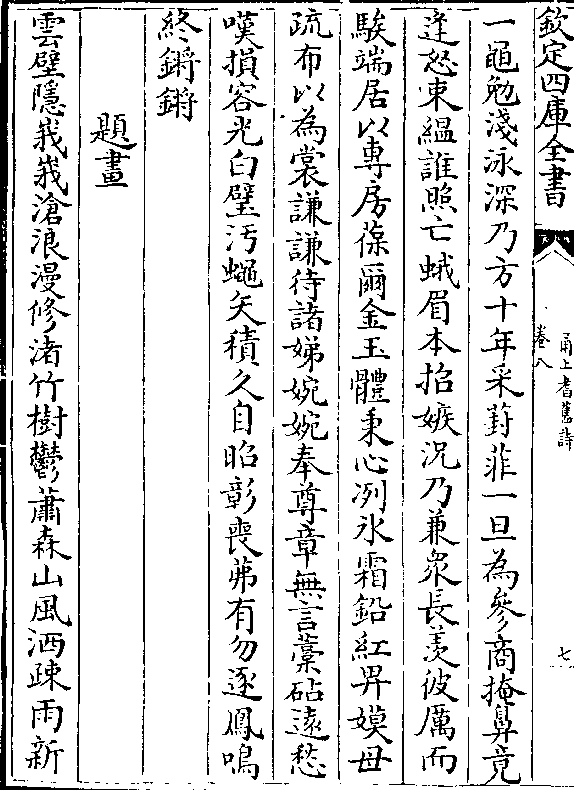 欽定四庫全書
甬上耆舊詩
卷八
七
一黽勉淺泳深乃方十年采葑菲一旦為參商掩鼻竟
逢怒束縕誰照亡蛾眉本招嫉況乃兼衆長羡彼厲而
駿端居以專房葆爾金玉體秉心冽氷霜鉛紅畀嫫母
疏布以為裳謙謙待諸娣婉婉奉尊章無言藁砧遠愁
嘆損容光白璧汚蠅矢積久自昭彰喪茀有勿逐鳳鳴
終鏘鏘
題畫
雲壁隱峩峩滄浪漫修渚竹樹鬱蕭森山風洒疎雨新